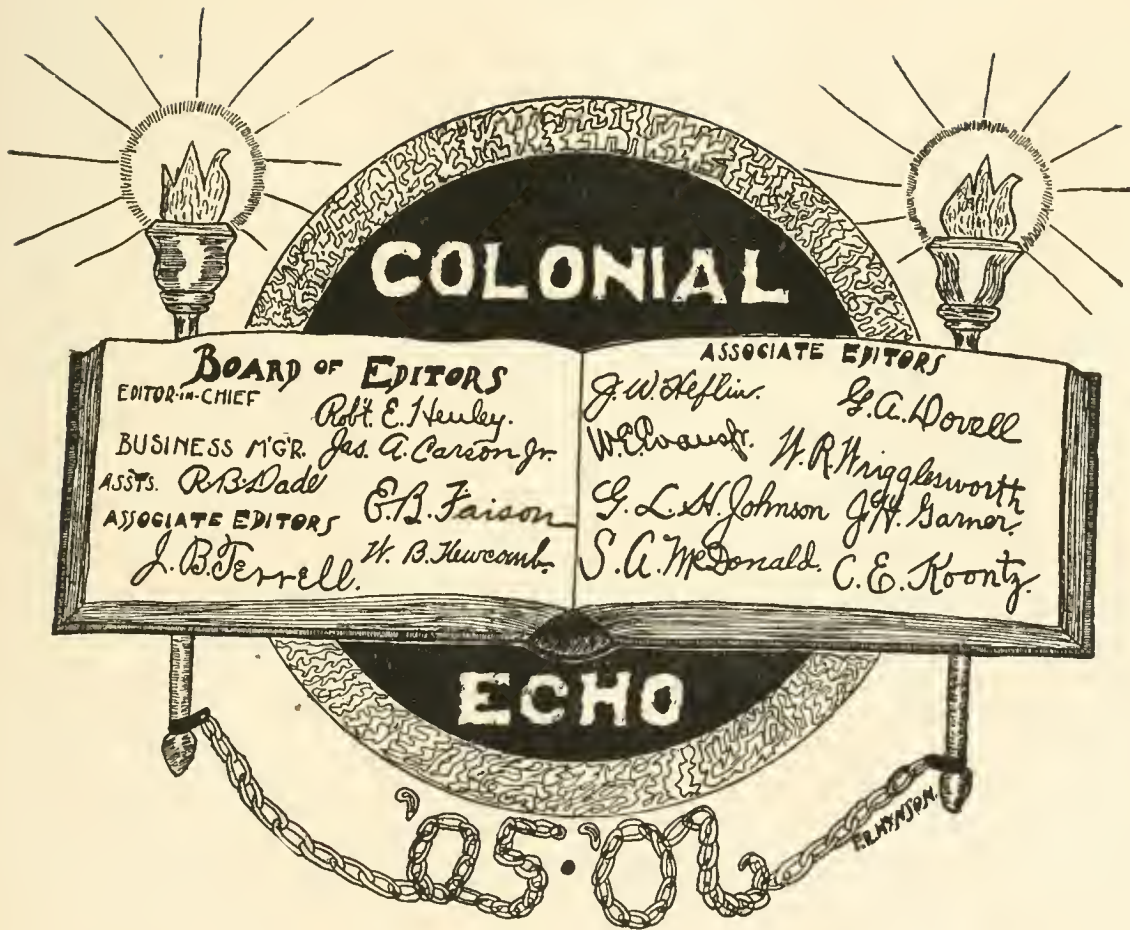 COLONIAL
BOARD OF EDITORS
EDITOR-IN-CHIEF
Rob't. E. Henley.
BUSINESS M'G'R. Jas. A. Carson Jr.
ASSTS. R. B. Dade
E. B. Faison
ASSOCIATE EDITORS
W. B. Newcomb.
J. B. Terrell.
ASSOCIATE EDITORS
J. W. Heflin.
G. A. Dovell
W. E. Evans Jr.
W. R. Wrigglesworth
G. L. H. Johnson
J. H. Garner.
S. A. McDonald.
C. E. Koontz.
ECHO
'05·'06
HYNSON.